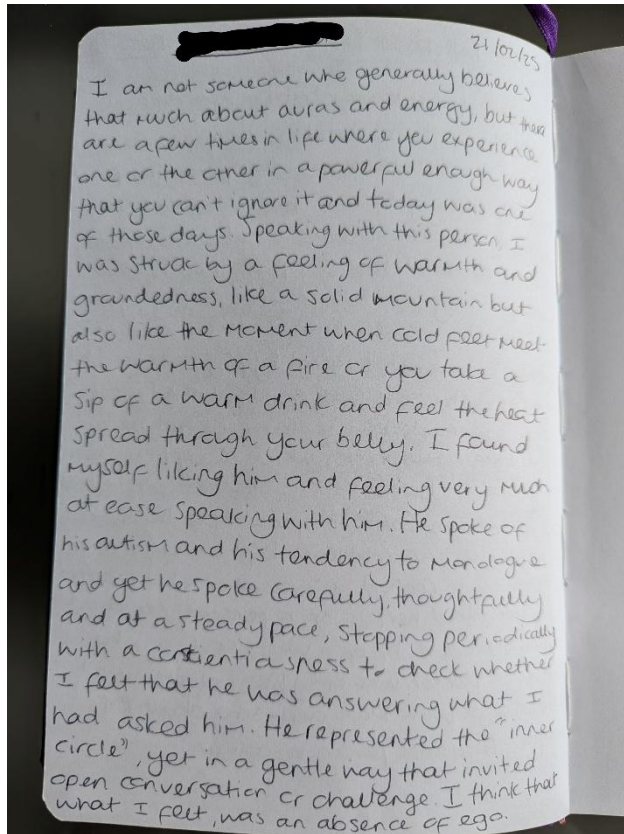 21/02/25
I am not someone who generally believes
that much about auras and energy, but there
are a few times in life where you experience
one or the other in a powerful enough way
that you can't ignore it and today was one
of those days. Speaking with this person, I
was struck by a feeling of warmth and
groundedness, like a solid mountain but
also like the moment when cold feet meet
the warmth of a fire or you take a
sip of a warm drink and feel the heat
spread through your belly. I found
myself liking him and feeling very much
at ease speaking with him. He spoke of
his autism and his tendency to monologue
and yet he spoke carefully, thoughtfully
and at a steady pace, stopping periodically
with a conscientiousness to check whether
I felt that he was answering what I
had asked him. He represented the "inner
circle", yet in a gentle way that invited
open conversation or challenge. I think that
what I felt, was an absence of ego.